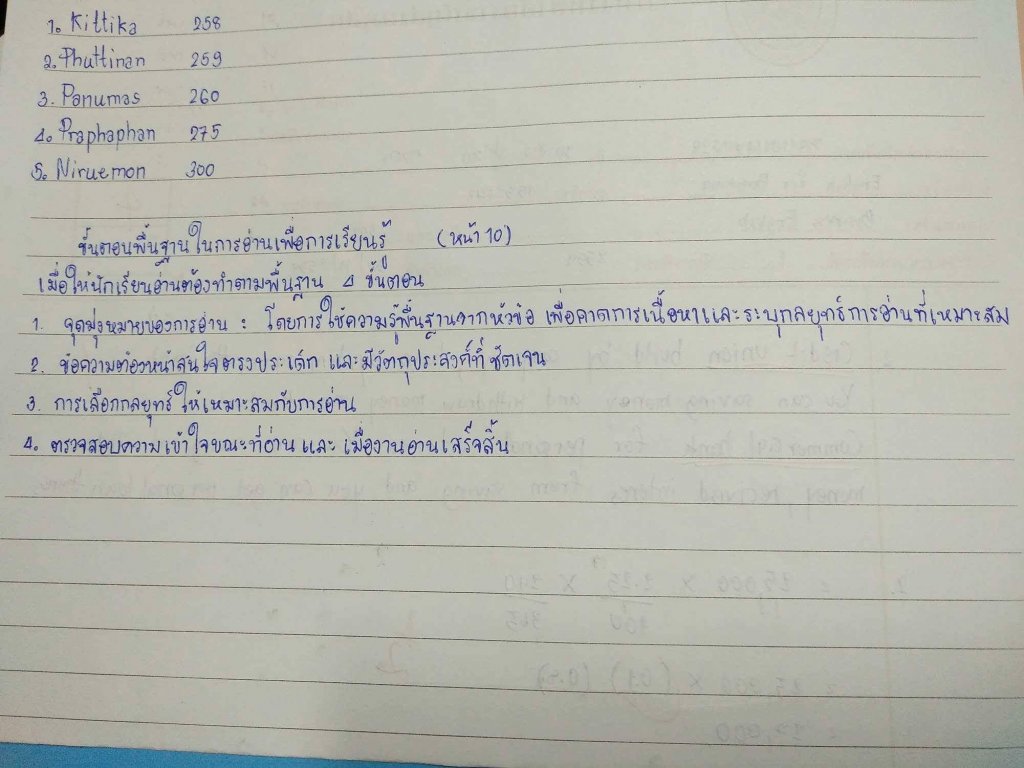 1. Kittika 258
2. Phuttinan 259
3. Panumas 260
4. Praphaphan 275
5. Niruemon 300
ขั้นตอนพื้นฐานในการอ่านเพื่อการเรียนรู้ (หน้า 10)
เมื่อให้นักเรียนอ่านต้องทำตามพื้นฐาน 4 ขั้นตอน
1. จุดมุ่งหมายของการอ่าน : โดยการใช้ความรู้พื้นฐานจากหัวข้อ เพื่อคาดการเนื้อหาและระบุกลยุทธ์การอ่านที่เหมาะสม
2. ข้อความต้องหน้าสนใจตรงประเด็ก และมีวัตถุประสงค์ที่ชัดเจน
3. การเลือกกลยุทธ์ให้เหมาะสมกับการอ่าน
4. ตรวจสอบความเข้าใจขณะที่อ่านและเมื่องานอ่านเสร็จสิ้น